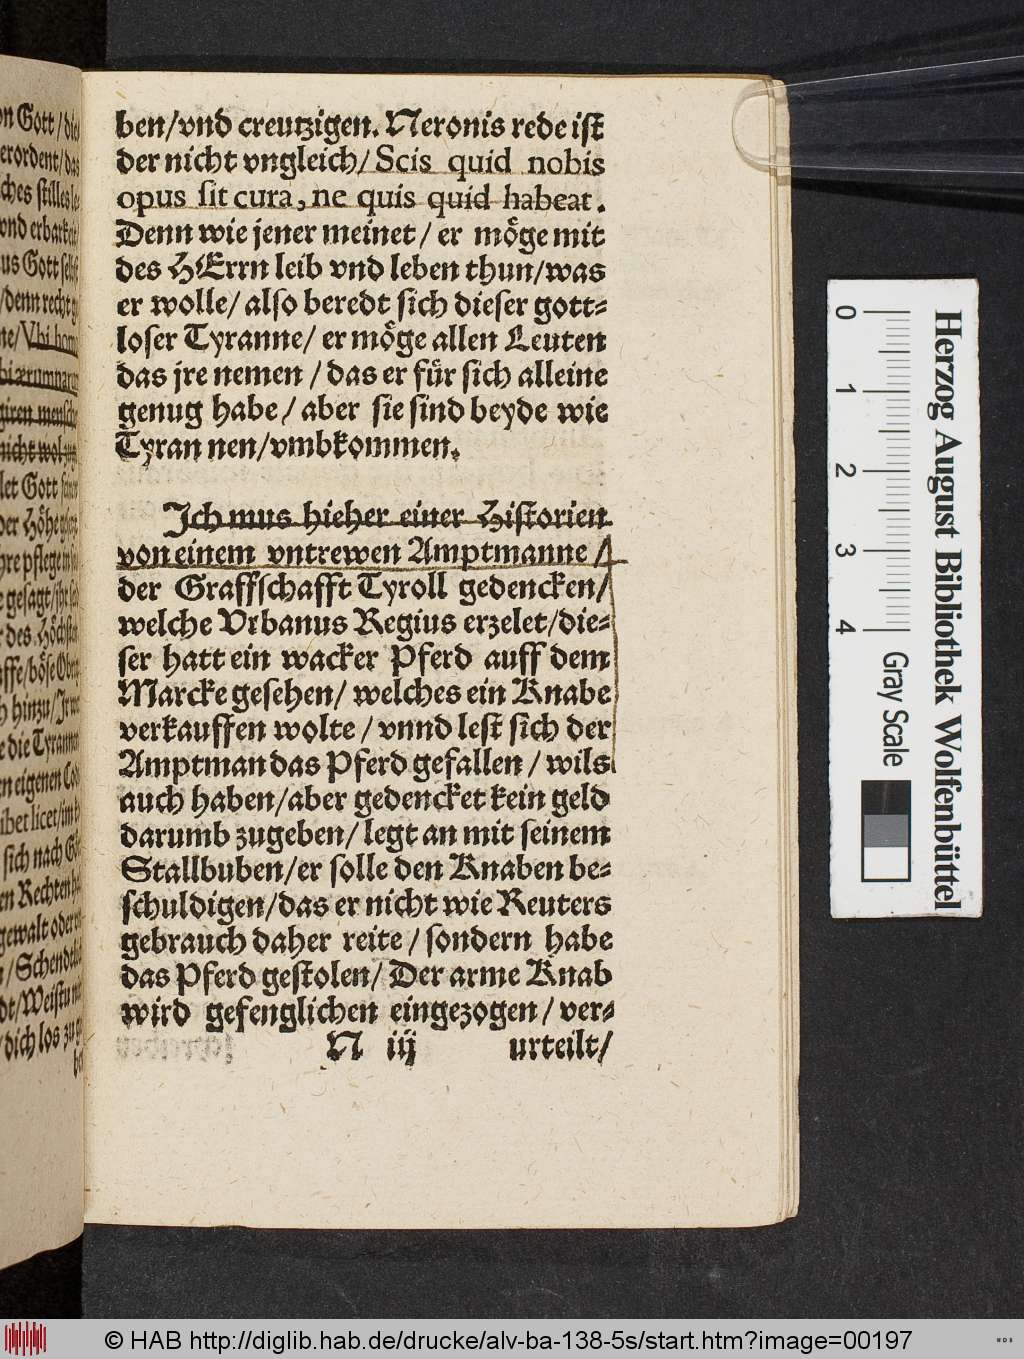 on Gott / die
erordent / das
ches stilles le-
vnd erbarkeit
us Gott selbst
/ denn recht
ne / Vbi homi
bi ærumnarum
giren mensche
nicht wol
let Gott seine
der Höhe
hre pflege
e gesagt / jhr
r des Höchsten
affe / böse Obrig
h hinzu / Ir
e die Tyrannen
en eigenen
libet licet / im
sich nach
en Rechten
gewalt oder
n / Schendt
dt / Weistu
/ dich los zu
be
ben / vnd creutzigen. Neronis rede ist
der nicht vngleich / Scis quid nobis
opus sit cura, ne quis quid habeat.
Denn wie jener meinet / er möge mit
des HErrn leib vnd leben thun / was
er wolle / also beredt sich dieser gott-
loser Tyranne / er möge allen Leuten
das jre nemen / das er für sich alleine
genug habe / aber sie sind beyde wie
Tyran nen / vmbkommen.
Ich mus hieher einer Historien
von einem vntrewen Amptmanne /
der Graffschafft Tyroll gedencken /
welche Vrbanus Regius erzelet / die-
ser hatt ein wacker Pferd auff dem
Marcke gesehen / welches ein Knabe
verkauffen wolte / vnnd lest sich der
Amptman das Pferd gefallen / wils
auch haben / aber gedencket kein geld
darumb zugeben / legt an mit seinem
Stallbuben / er solle den Knaben be-
schuldigen / das er nicht wie Reuters
gebrauch daher reite / sondern habe
das Pferd gestolen / Der arme Knab
wird gefenglichen eingezogen / ver-
N iij urteilt /
0 1 2 3 4 Gray Scale
Herzog August Bibliothek Wolfenbüttel
© HAB http://diglib.hab.de/drucke/alv-ba-138-5s/start.htm?image=00197